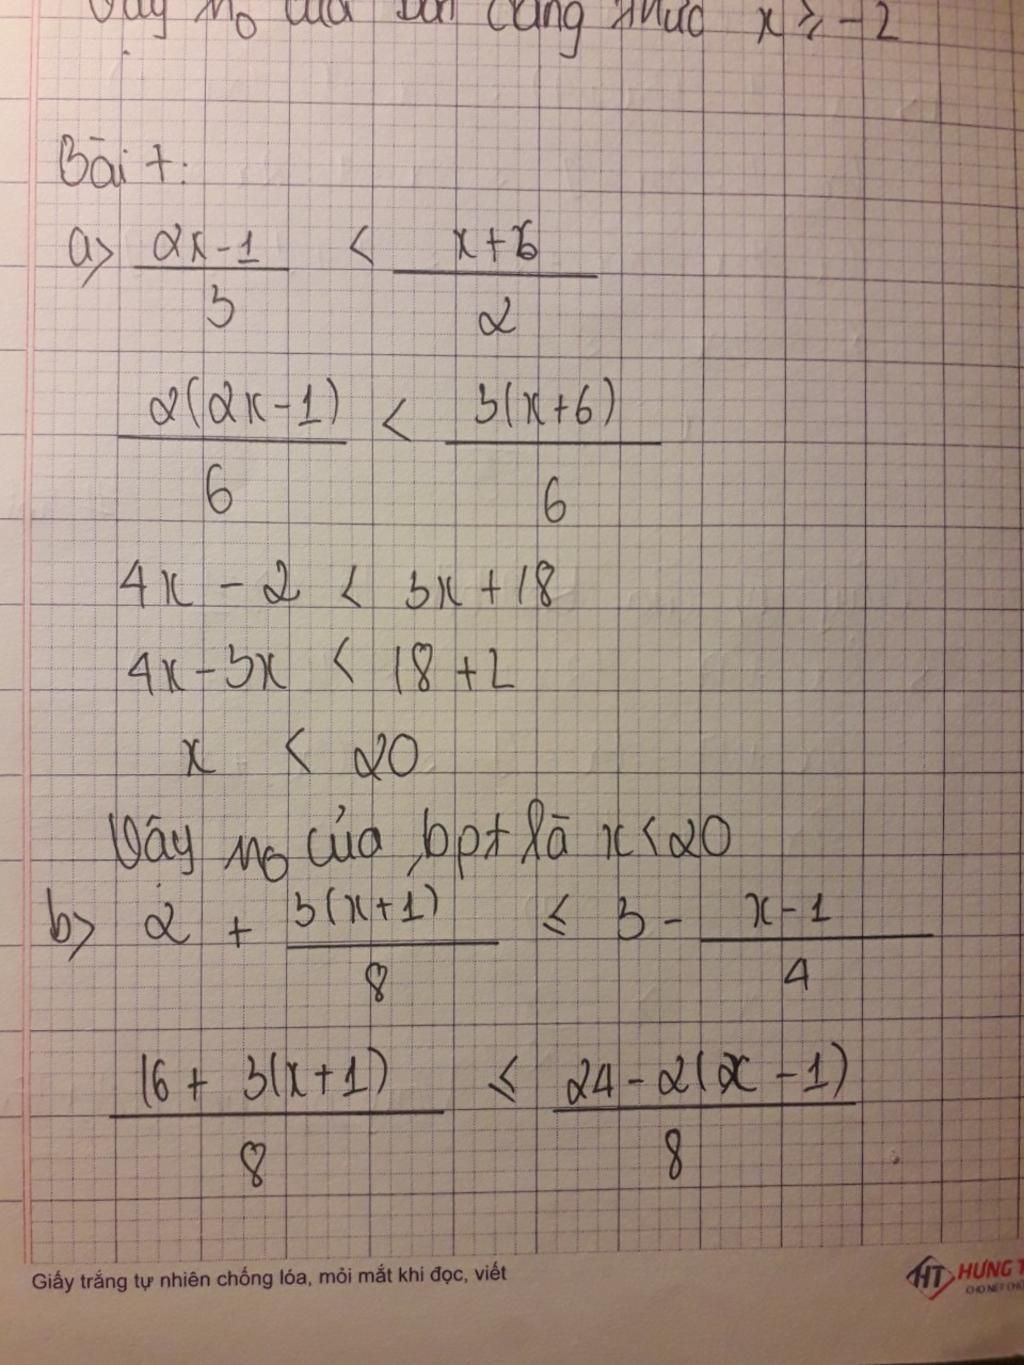 Vậy no của bất đẳng thức x ≥ -2
Bài 7:
a> (2x-1)/3 < (x+6)/2
2(2x-1)/6 < 3(x+6)/6
4x - 2 < 3x + 18
4x - 3x < 18 + 2
x < 20
Vậy no của bpt là x < 20
b> 2 + 3(x+1)/8 ≤ 3 - (x-1)/4
(16 + 3(x+1))/8 ≤ (24 - 2(x-1))/8
Giấy trắng tự nhiên chống lóa, mỏi mắt khi đọc, viết
HT HƯNG